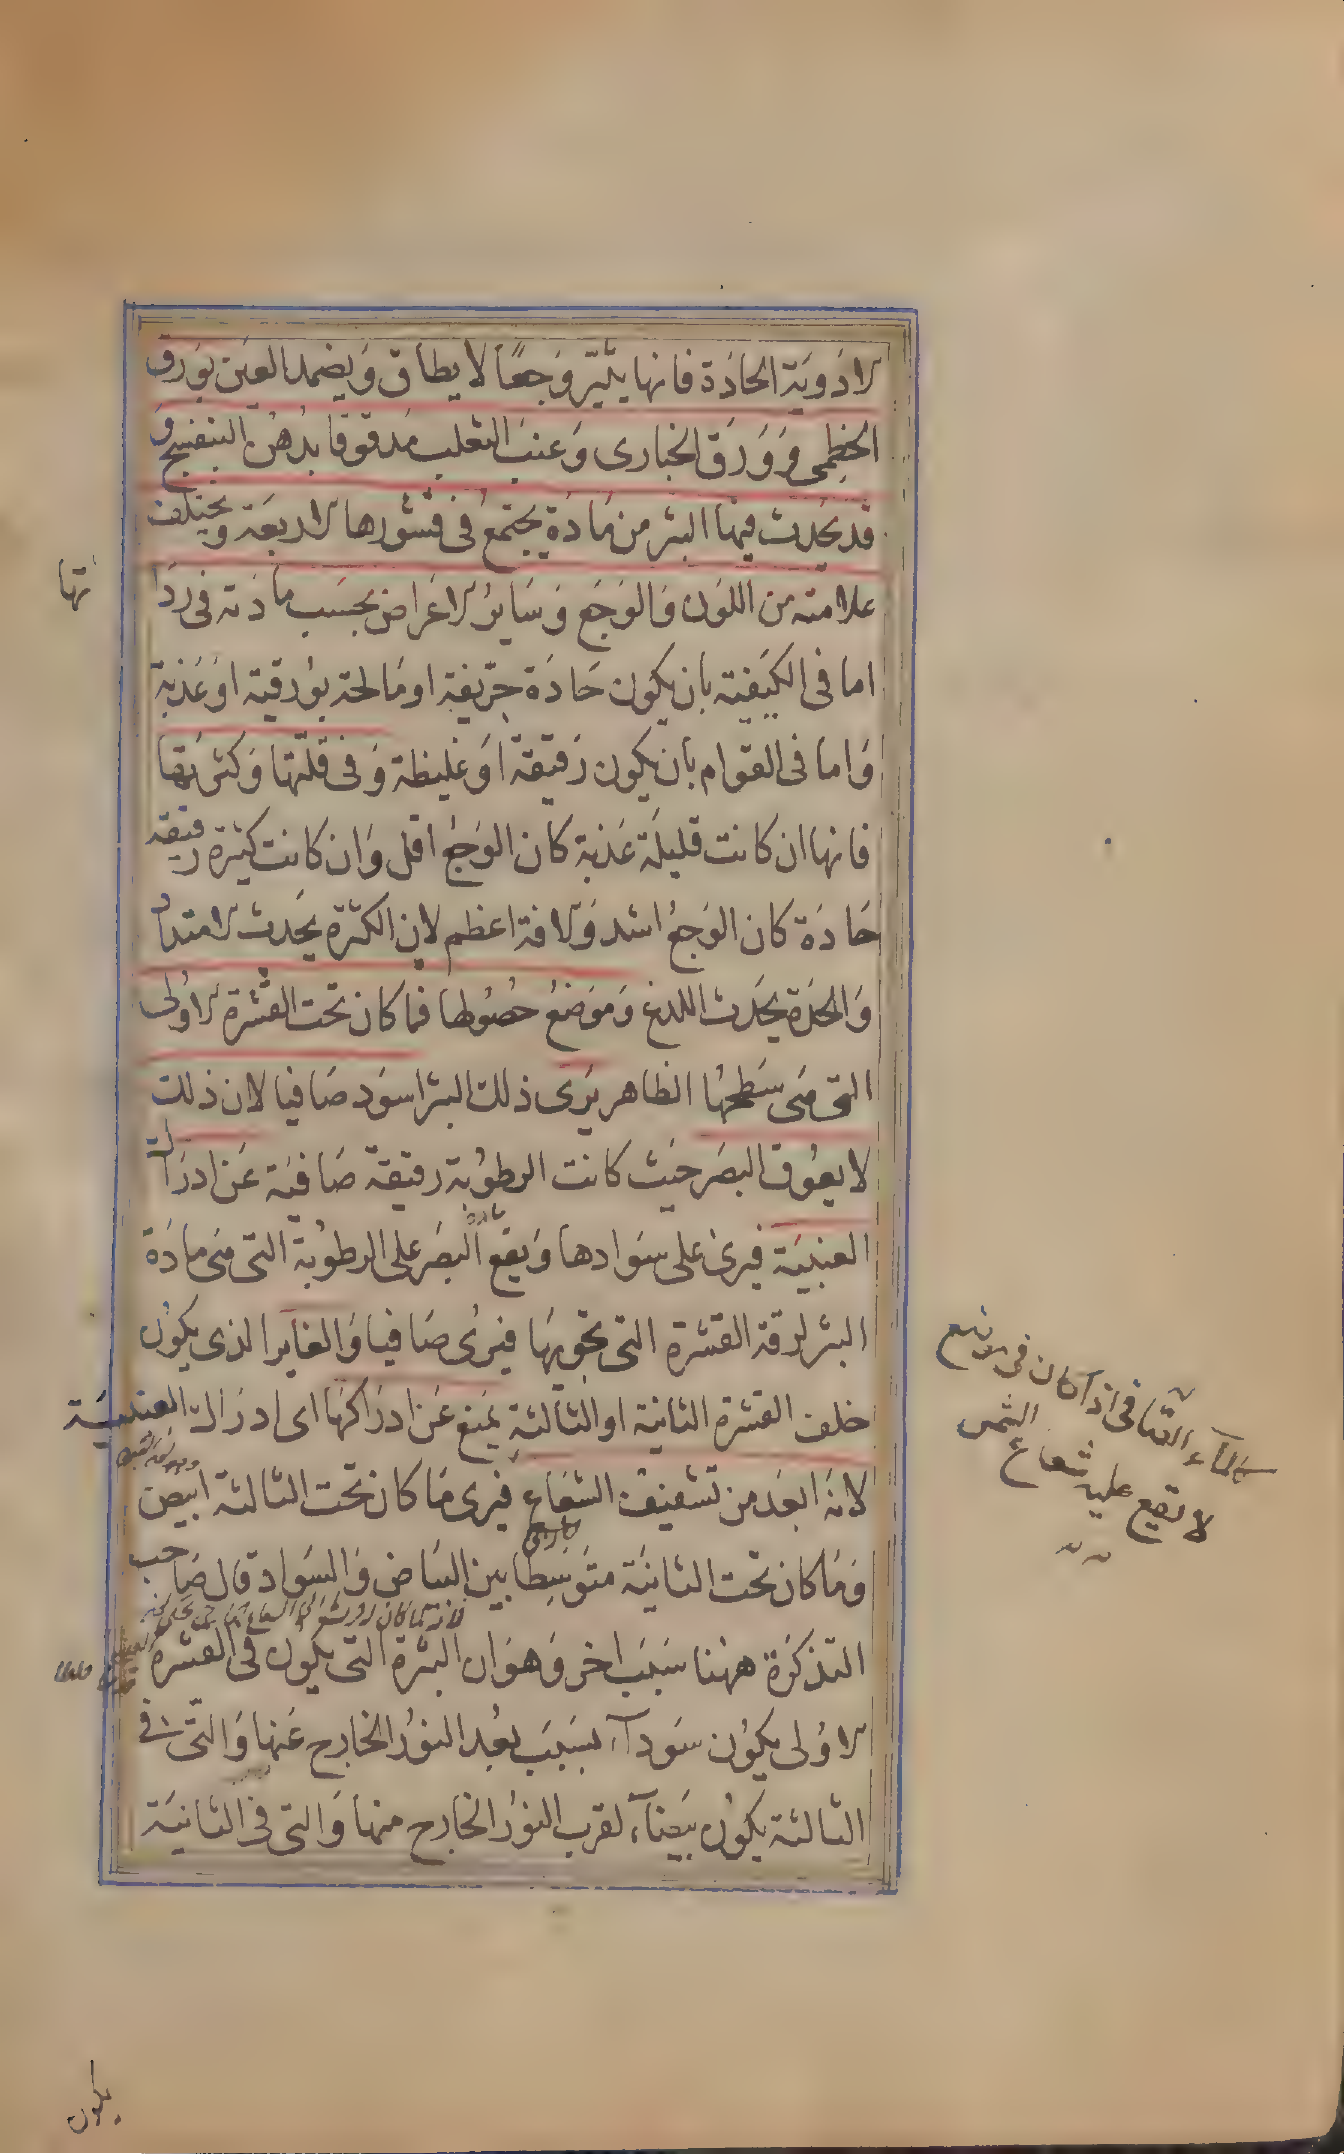 الادوية الحادة فانها يثير وجعا لا يطاق ويضمد العين بورق
الخطمى وورق الخبارى وعنب الثعلب مدقوقا بدهن البنفسج و
قد يحدث فيها البثر من مادة يجتمع فى قشورها الاربعة ويختلف
علامته من اللون والوجع وساير الاعراض بحسب مادته فى ردا
تها
اما فى الكيفية بان يكون حادة حريفة او مالحة بورقية او عذبة
واما فى القوام بان يكون رقيقة او غليظة وفى قلتها وكثرتها
فانها ان كانت قليلة عذبة كان الوجع اقل وان كانت كثيرة رقيقة
حادة كان الوجع اشد والافة اعظم لان الكثرة يحدث الامتداد
والحدة يحدث اللدغ وموضع حصولها فما كان تحت القشرة الاولى
التى هى سطحها الظاهر يرى ذلك البثر اسود صافيا لان ذلك
لا يعوق البصر حيث كانت الرطوبة رقيقة صافية عن ادراك
العنبية فيرى على سوادها ويقع البصر على الرطوبة التى هى مادة
البثر لرقة القشرة التى تحويها فيرى صافيا والغاير الذى يكون
خلف القشرة الثانية او الثالثة يمنع عن ادراكها اى ادراك العنبية
لانه ابعد من تشفيف الشعاع فيرى ما كان تحت الثالثة ابيض
وما كان تحت الثانية متوسطا بين البياض والسواد قال صاحب
التذكرة ههنا سبب اخر وهو ان البثرة التى يكون فى القشرة
الاولى يكون سودآء بسبب بعد النور الخارج عنها والتى فى
الثالثة يكون بيضآء لقرب النور الخارج منها والتى فى الثانية
كالمآء الصافى اذا كان فى موضع
لا يقع عليه شعاع الشمس
يكون